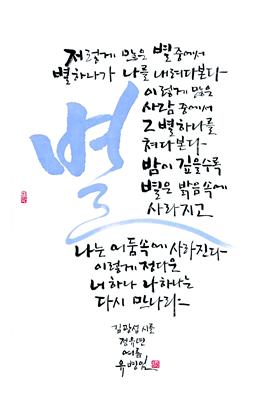 저렇게 많은 별 중에서
별하나가 나를 내려다본다
이렇게 많은
사람 중에서
그 별하나를
쳐다본다
밤이 깊을수록
별은 밝음속에
사라지고
별
나는 어둠속에 사라진다
이렇게 정다운
너 하나 나 하나는
다시 만나랴
김광섭 시를
정유년
여름